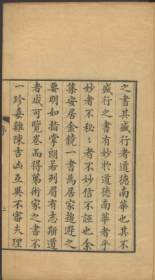 之書其盛行者道德南華也其不
盛行之書有妙於道德南華者乎
妙者不秘秘者不妙信不誣也余
集安居金鏡一書爲居家趨避之
要明如指掌朗若列眉有志斯道
者咸可覽卷而得其術家之書不
一珍妄雜陳吉凶互異不審夫理
序